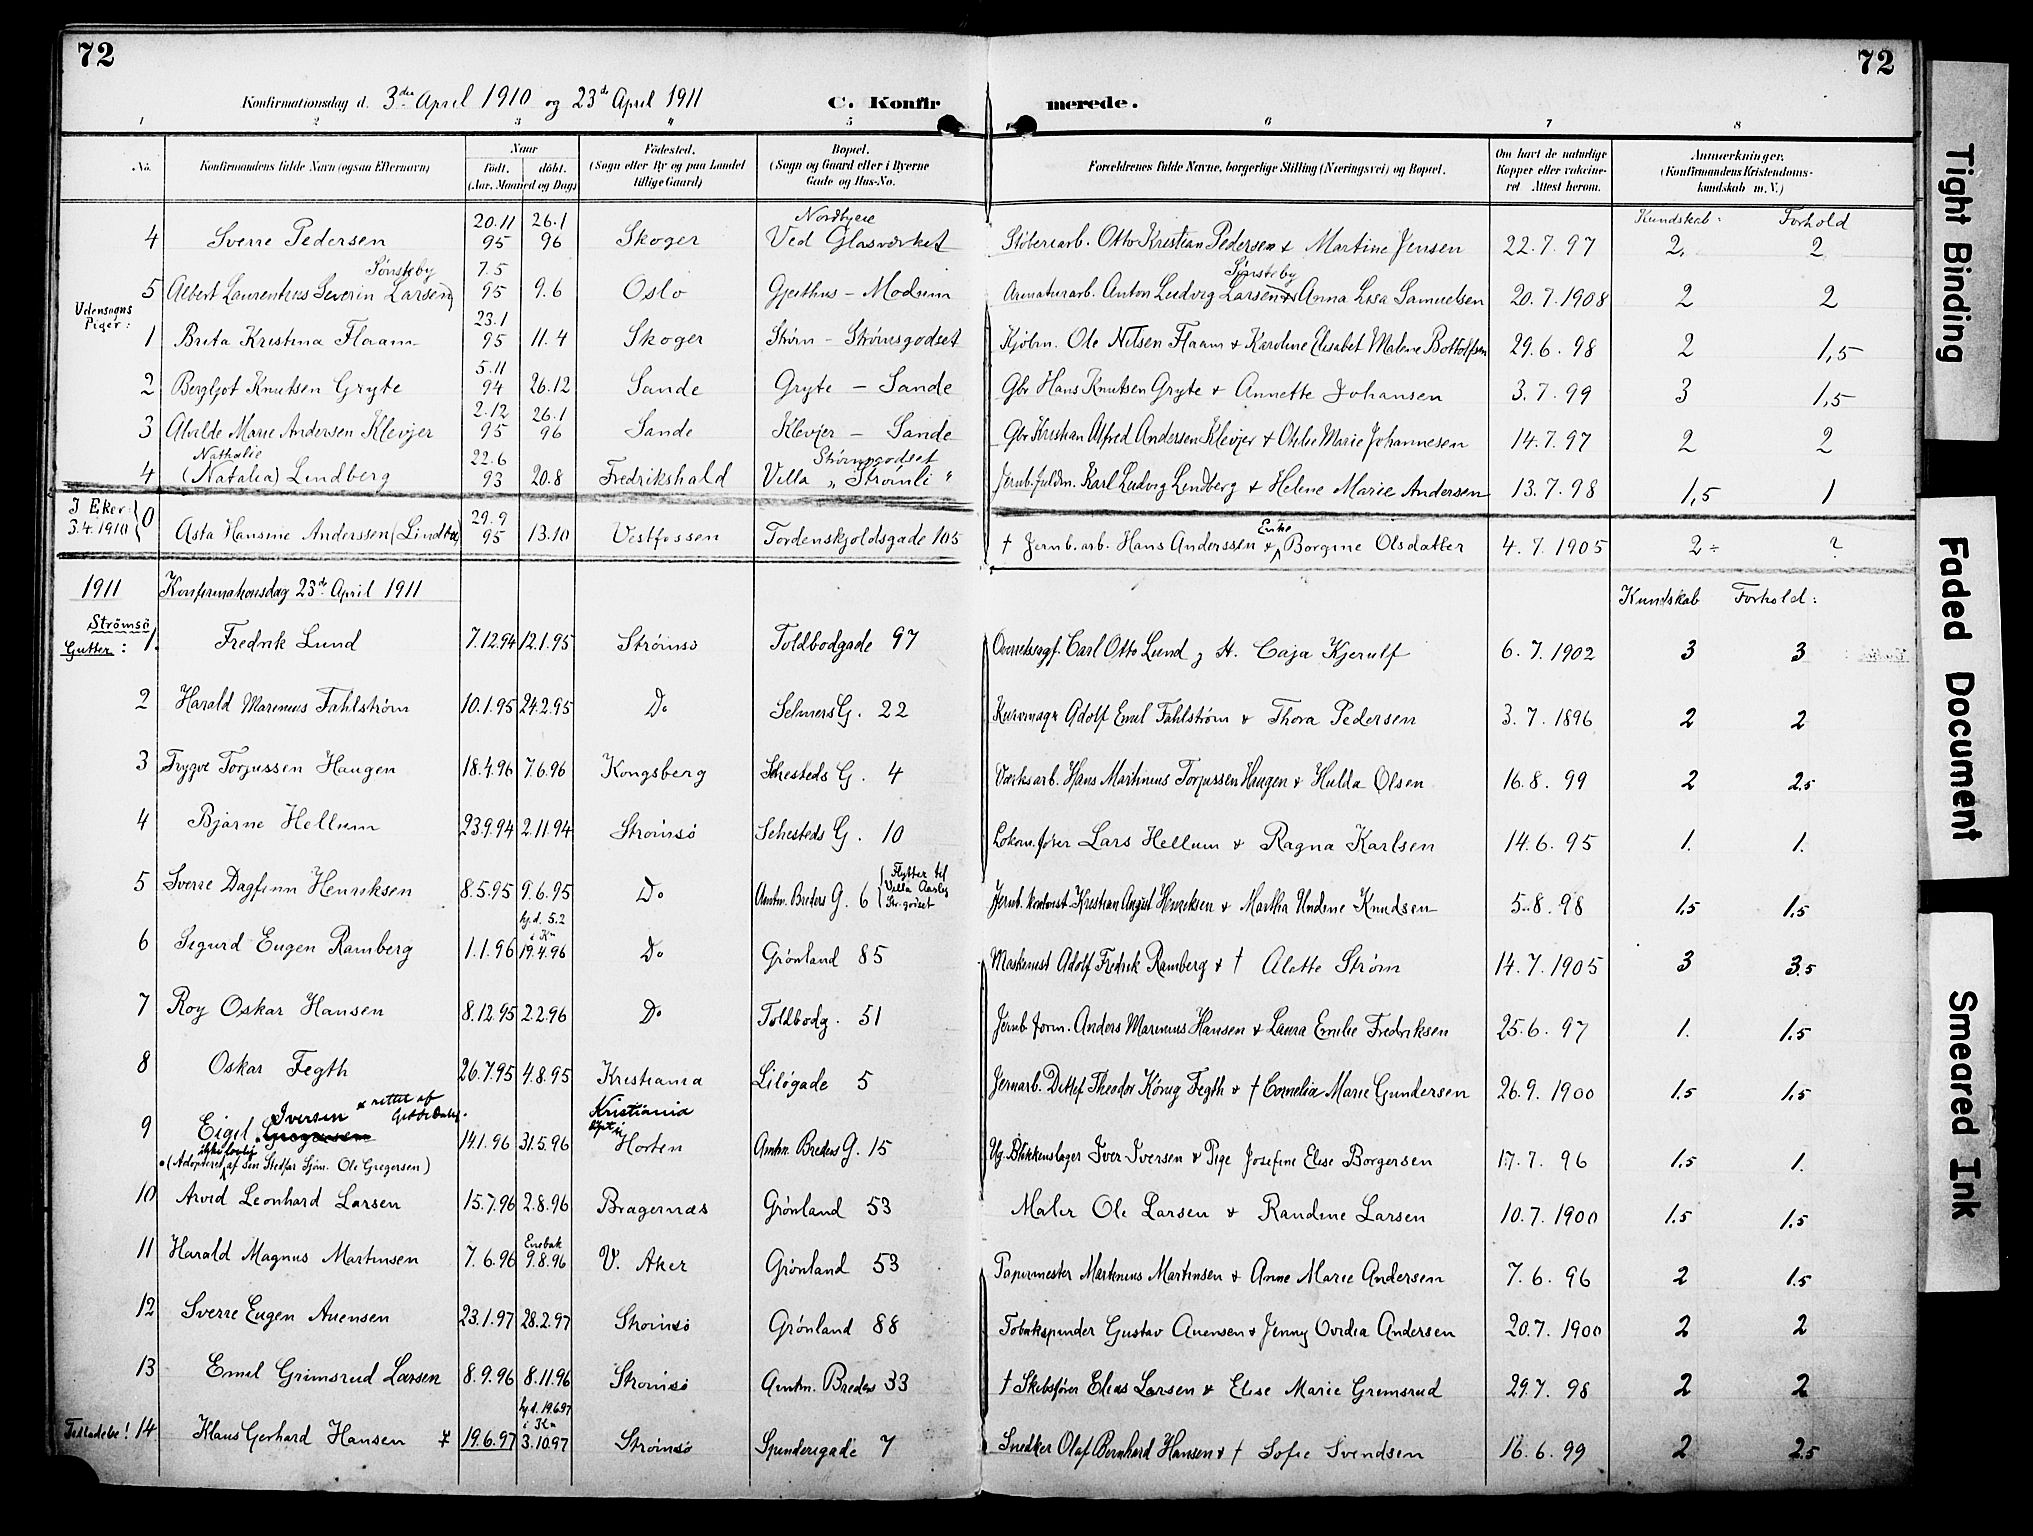 72
72
Konfirmationsdag d. 3die April 1910 og 23de April 1911
C. Konfir merede.
1 2 3 4 5 6 7 8
No.
Konfirmandens fulde Navn (ogsaa Efternavn)
Naar
født. døbt.
(Aar, Maaned og Dag)
Fødested.
(Sogn eller By og paa Landet
tillige Gaard)
Bopæl.
(Sogn og Gaard eller i Byerne
Gade og Hus-No.
Forældrenes fulde Navne, borgerlige Stilling (Næringsvei) og Bopæl.
Om havt de naturlige
Kopper eller vakcine-
ret Attest herom.
Anmærkninger.
(Konfirmandens Kristendoms-
kundskab m. V.)
Kundskab: Forhold
4 Sverre Pedersen 20.11 95 26.1 96 Skoger Nordbyen Ved Glasværket Støberiarb. Otto Kristian Pedersen & Martine Jensen 22.7.97 2. 2
5 Albert Laurentius Severin Larsen Sønsteby 7.5 95 9.6 Oslo Gjethus - Modum Armaturarb. Anton Ludvig Larsen Sønsteby & Anna Lisa Samuelsen 20.7.1908 2 2
Udensogns
Piger:
1 Brita Kristina Flaam 23.1 95 11.4 Skoger Strøm - Strømsgodset Kjøbm. Ole Nilsen Flaam & Karoline Elisabet Malene Bottolfsen 29.6.98 2 1,5
2 Bergljot Knutsen Gryte 5.11 94 26.12 Sande Gryte - Sande Gbr Hans Knutsen Gryte & Annette Johansen 3.7.99 3 1,5
3 Alvilde Marie Andersen Klevjer 2.12 95 26.1 96 Sande Klevjer - Sande Gbr Kristian Alfred Andersen Klevjer & Otilie Marie Johannesen 14.7.97 2 2
4 Nathalie (Natalia) Lindberg 22.6 93 20.8 Fredrikshald Strømsgodset Villa „Strømli" Jernb.fuldm. Karl Ludvig Lindberg & Helene Marie Andersen 13.7.98 1,5 1
I Eker
3.4.1910 0 Asta Hansine Anderssen 29.9 95 13.10 Vestfossen Tordenskjoldsgade 105 † Jernb.arb. Hans Anderssen & Enke Borgine Olsdatter 4.7.1905 2÷ ?
1911 Konfirmationsdag 23de April 1911 Kundskab Forhold:
Strømsö
Gutter: 1. Fredrik Lund 7.12.94 12.1.95 Strømsö Toldbodgade 97 Overretssagf. Carl Otto Lund & H. Caja Kjerulf 6.7.1902 3 3
2 Harald Marinius Fahlström 10.1.95 24.2.95 Do Selmers G. 22 Kurvmagr Adolf Emil Fahlström & Thora Pedersen 3.7.1896 2 2
3 Trygve Torjussen Haugen 18.4.96 7.6.96 Kongsberg Sehesteds G. 4 Værksarb. Hans Martinius Torjussen Haugen & Hulda Olsen 16.8.99 2 2.5
4 Bjarne Hellum 23.9.94 2.11.94 Strømsö Sehesteds G. 10 Lokom.fører Lars Hellum & Ragna Karlsen 14.6.95 1. 1.
5 Sverre Dagfinn Henriksen 8.5.95 9.6.95 Do Amtm. Breders G. 6 Flytter til Villa Aasly Str.godset Jernb. kontorist Kristian August Henriksen & Martha Undine Knudsen 5.8.98 1,5 1.5
6 Sigurd Eugen Ramberg 1.1.96 hj.d. 5.2 i Kn 19.4.96 Do Grönland 85 Maskinist Adolf Fredrik Ramberg & † Alette Ström 14.7.1905 3 3.5
7 Roy Oskar Hansen 8.12.95 2.2.96 Do Toldbodg. 51 Jernb form. Anders Marinius Hansen & Laura Emilie Fredriksen 25.6.97 1. 1.5
8 Oskar Fegth 26.7.95 4.8.95 Kristiania Liløgade 5 Jernarb. Detlef Theodor König Fegth & † Cornelia Marie Gundersen 26.9.1900 1.5 1.5
9 Eigil Iversen Gregersen × rettet af 14.1.96 31.5.96 Kristiania døpt i Horten Amtm. Breders G. 15 Ug. Blikkenslager Iver Iversen & Pige Josefine Elise Borgersen 17.7.96 1.5 1.
(Adopteret ikke lovlig af sin Stedfar Sjöm. Ole Gregersen)
10 Arvid Leonhard Larsen 15.7.96 2.8.96 Bragernæs Grönland 53 Maler Ole Larsen & Randine Larsen 10.7.1900 1.5 1.5
11 Harald Magnus Martinsen 7.6.96 Enebak 9.8.96 V. Aker Grönland 53 Papirmester Martinius Martinsen & Anne Marie Andersen 7.6.96 2 1.5
12 Sverre Eugen Auensen 23.1.97 28.2.97 Strømsö Grönland 88 Tobakspinder Gustav Auensen & Jenny Ovidia Andersen 20.7.1900 2 2
13 Emil Grimsrud Larsen 8.9.96 8.11.96 Strømsö Amtm. Breders 33 † Skibsfører Elias Larsen & Elise Marie Grimsrud 29.7.98 2 2
14 Klaus Gerhard Hansen 19.6.97 hj.d. 19.6.97 i Kn 3.10.97 Strømsö Spinderigade 7 Snedker Olaf Bernhard Hansen & † Sofie Svendsen 16.6.99 2 2.5
Tight Binding
Faded Document
Smeared Ink